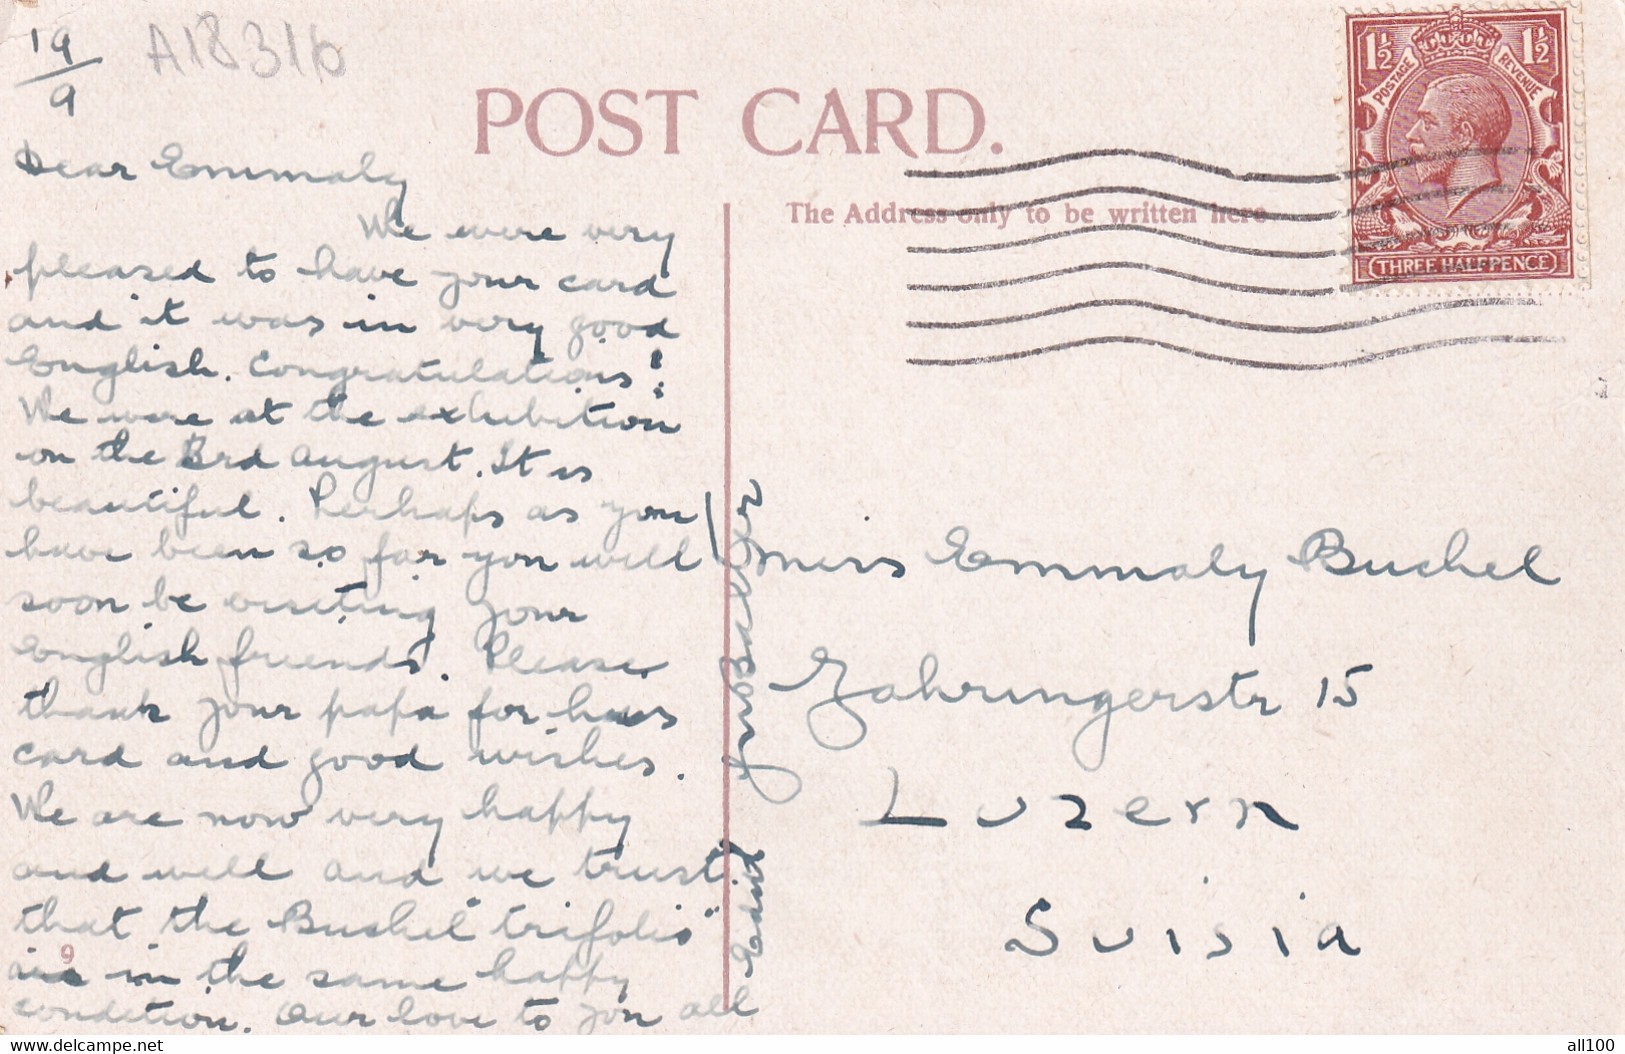 19
9
A1831b
POST CARD.
The Address only to be written here
1½ 1½
POSTAGE REVENUE
THREE HALFPENCE
Dear Emmaly
We were very
pleased to have your card
and it was in very good
English. Congratulations!
We were at the exhibition
on the 3rd August. It is
beautiful. Perhaps as you
have been so far you will
soon be visiting your
English friends. Please
thank your papa for his
card and good wishes.
We are now very happy
and well and we trust
that the Bushel "trifolio"
are in the same happy
condition. Our love to you all
Edith
Miss Emmaly Bushel
Zahringerstr 15
Luzern
Suisia
9
Walter
hobbydealer.com
all100